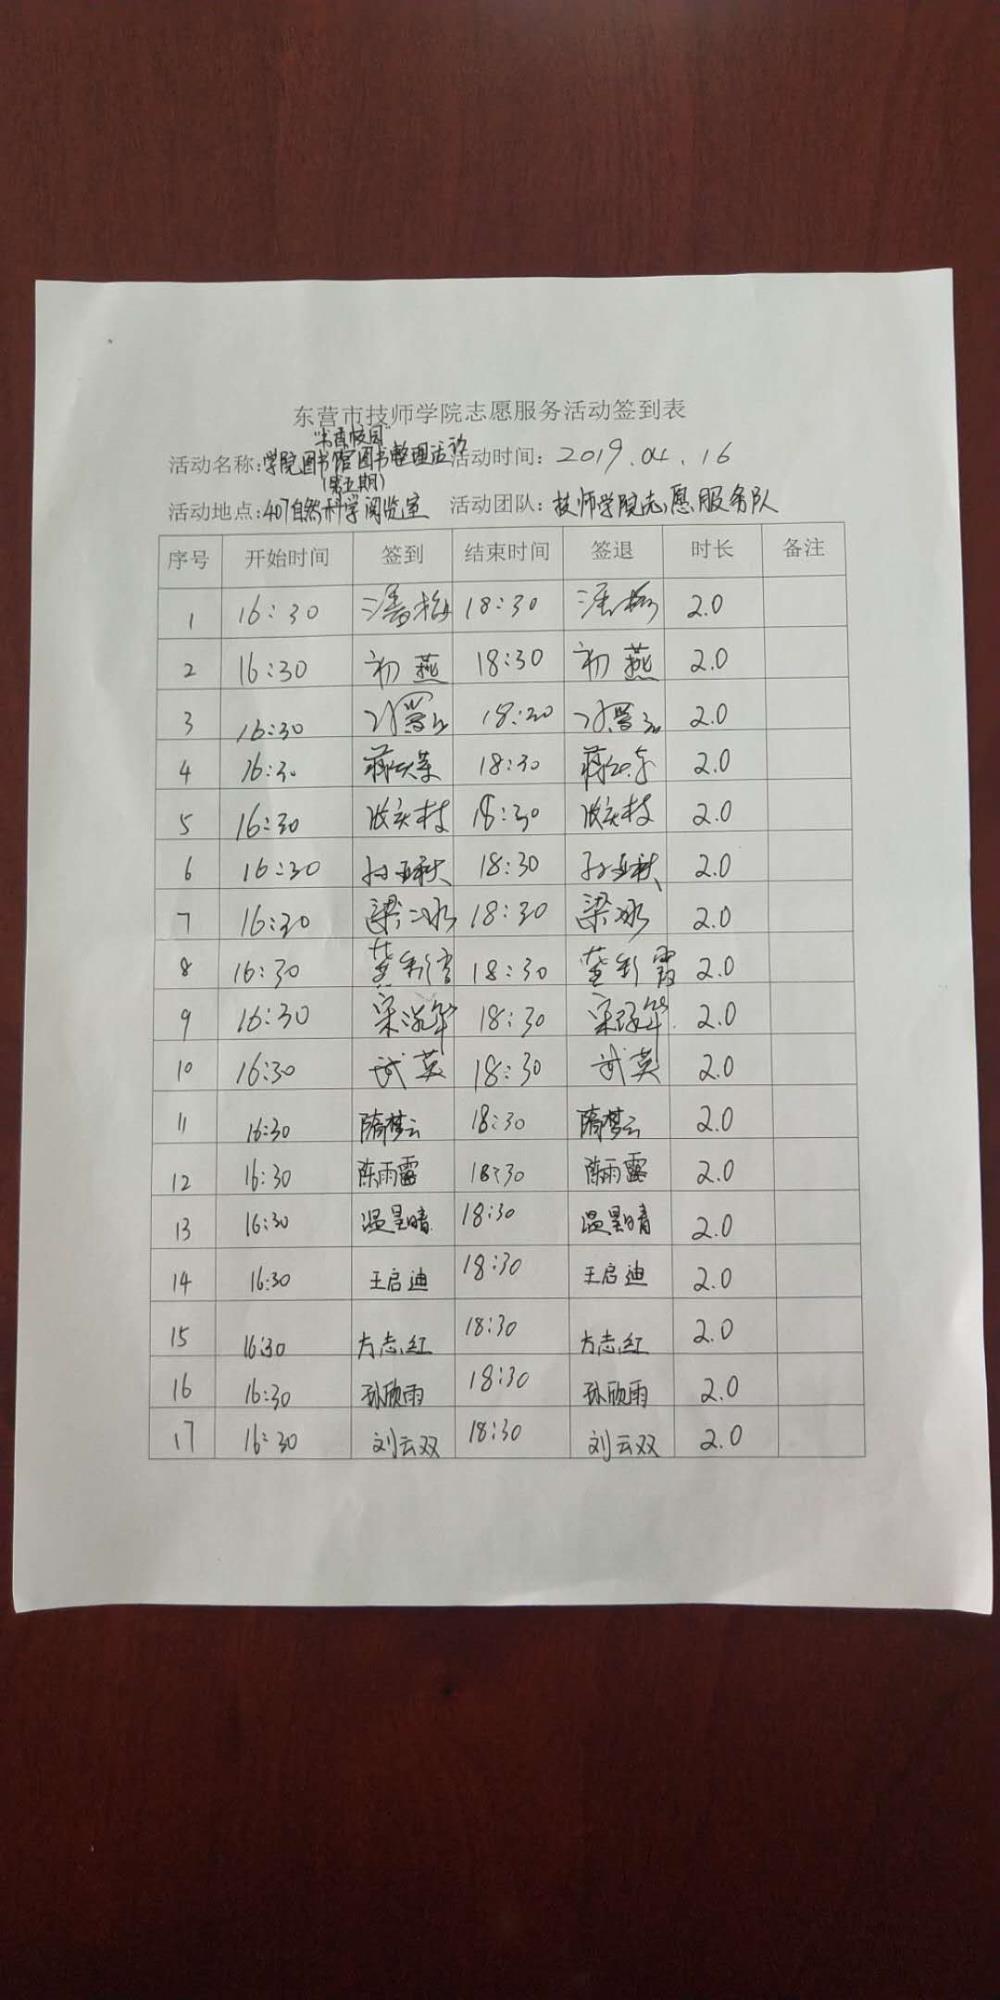 东营市技师学院志愿服务活动签到表
"书香校园"
活动名称:学院图书馆图书整理活动 活动时间: 2019.04.16
(第五期)
活动地点:407自然科学阅览室 活动团队: 技师学院志愿服务队
序号 开始时间 签到 结束时间 签退 时长 备注
1 16:30 潘梅 18:30 潘梅 2.0
2 16:30 初燕 18:30 初燕 2.0
3 16:30 18:30 2.0
4 16:30 18:30 2.0
5 16:30 18:30 2.0
6 16:30 孙亚秋 18:30 孙亚秋 2.0
7 16:30 梁冰 18:30 梁冰 2.0
8 16:30 18:30 2.0
9 16:30 18:30 2.0
10 16:30 武英 18:30 武英 2.0
11 16:30 隋梦云 18:30 隋梦云 2.0
12 16:30 陈雨露 18:30 陈雨露 2.0
13 16:30 温昱晴 18:30 温昱晴 2.0
14 16:30 王启迪 18:30 王启迪 2.0
15 16:30 方志红 18:30 方志红 2.0
16 16:30 孙欣雨 18:30 孙欣雨 2.0
17 16:30 刘云双 18:30 刘云双 2.0